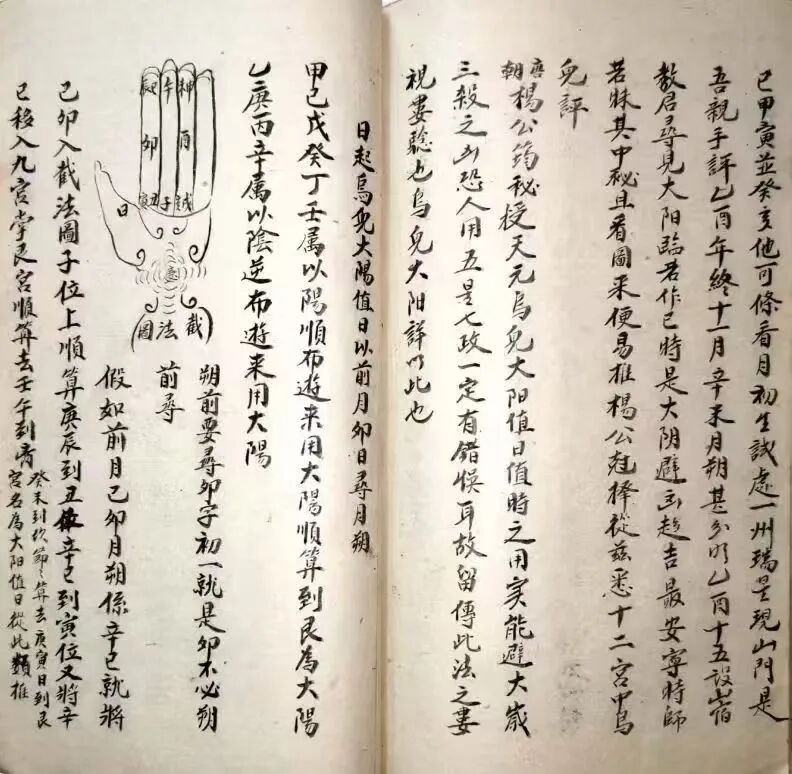 已甲寅並癸亥他可條看月初生誠處一州瑞星現山門是
吾親手評乙酉年終十一月辛未月朔甚分明乙酉十五設
教君尋見大阳臨若作已時是大阴避凶趁吉最安寧時師
若昧其中秘且看圖来便易推楊公尅擇從兹悉十二宮中烏
兎評
唐朝楊公筠秘授天元烏兎大阳值日值時之用实能避大歲
三殺之凶恐人用五星七政一定有錯悮耳故留傳此法之婁
視婁聡也烏兎大阳詳以此也
日起烏兎大陽值日以前月卯日尋月朔
甲己戊癸丁壬属以陽順布遊来用大陽順算到艮為大陽
乙庚丙辛属以陰逆布遊来用大陽
朔前要尋卯字初一就是卯不必朔
前尋
假如前月己卯月朔係辛巳就將
辰 午 神
卯 酉
寅 丑 子 誠
截法圖
己卯入截法圖子位上順算庚辰到丑辛巳到寅位又將辛
巳移入九宮掌艮宮順算去壬午到
癸未到坎節節算去庚寅日到艮
宮名為大阳值日從此類推